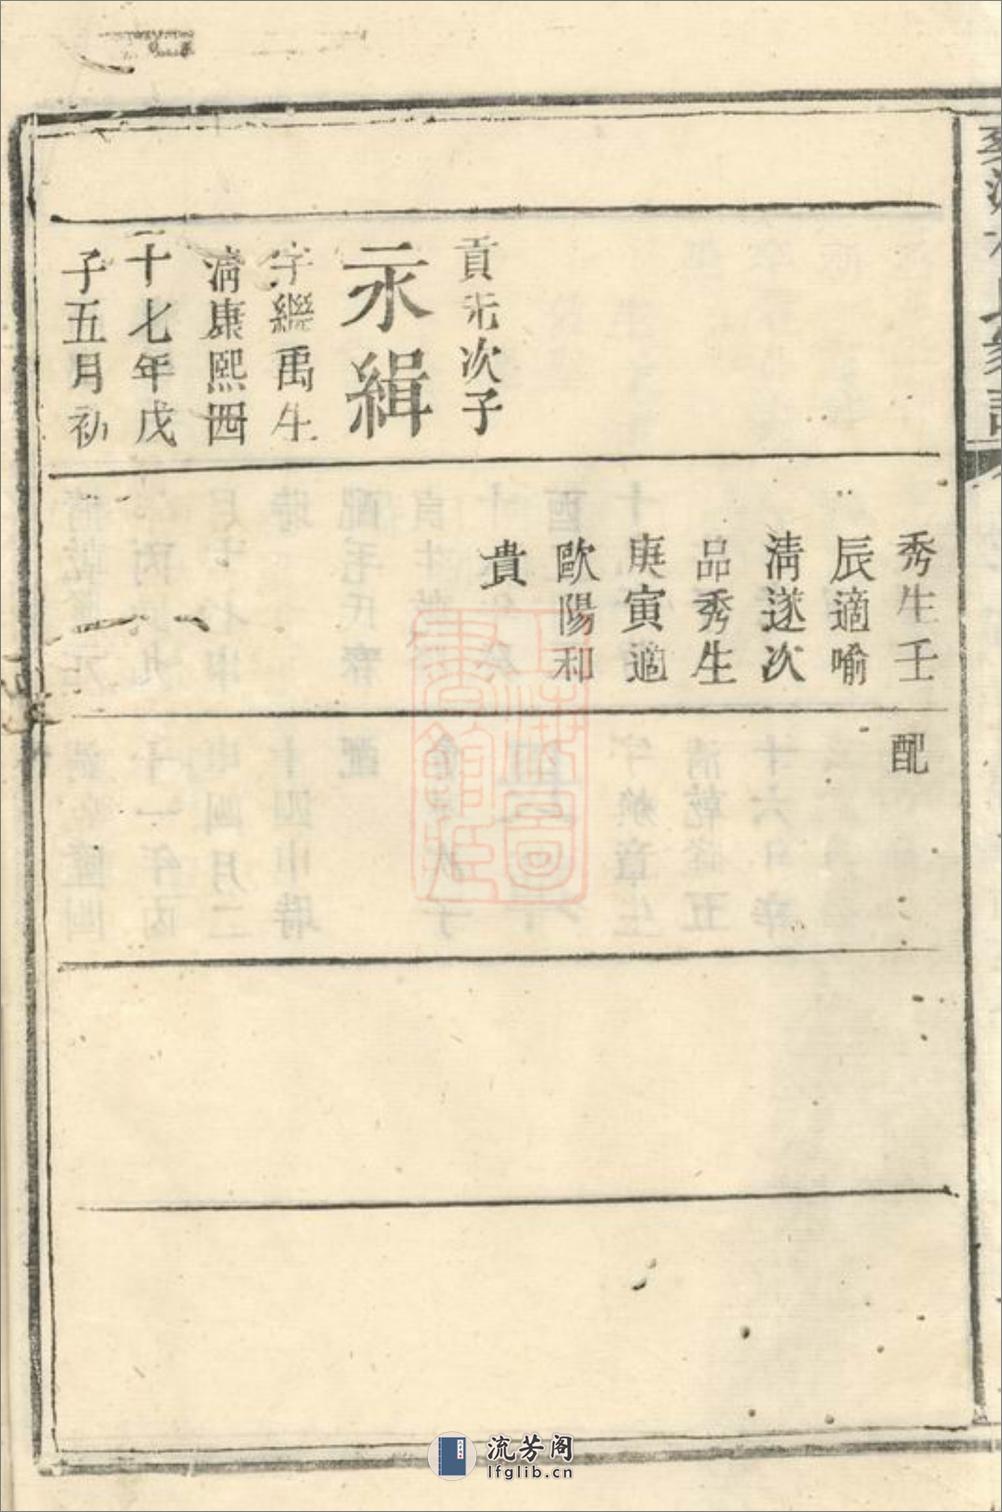 貢先次子
永緝
字繼禹生
淸康熙四
十七年戊
子五月初
秀生壬
辰適喻
淸遂次
品秀生
庚寅適
歐陽和
貴
配
上海圖書館藏
流芳阁
lfglib.cn